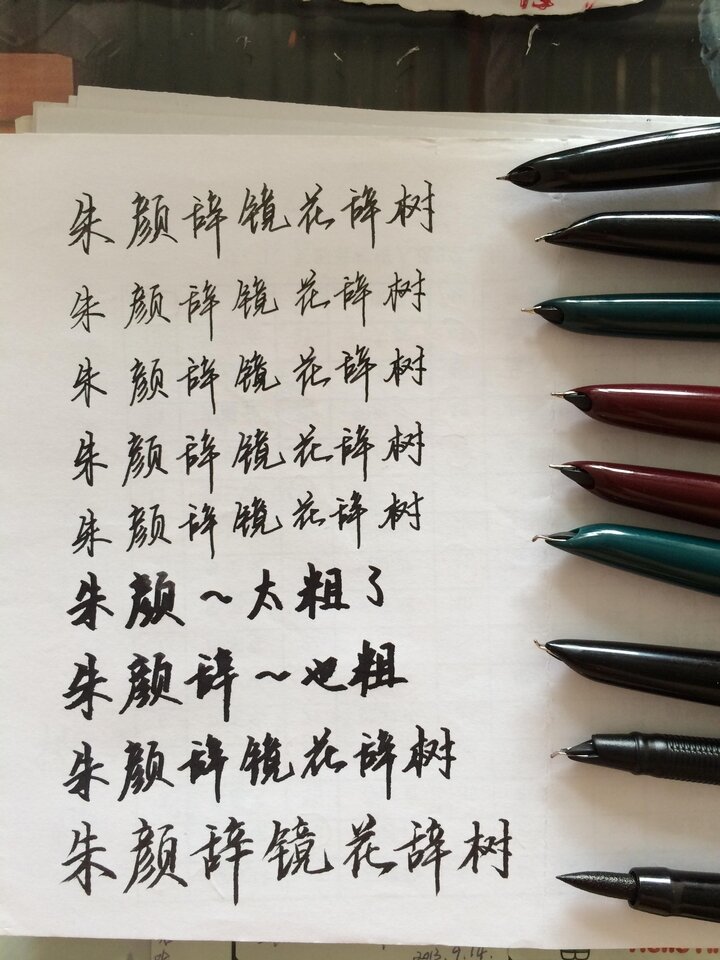 朱颜辞镜花辞树
朱颜辞镜花辞树
朱颜辞镜花辞树
朱颜辞镜花辞树
朱颜辞镜花辞树
朱颜~太粗了
朱颜辞~也粗
朱颜辞镜花辞树
朱颜辞镜花辞树
2013.9.14.